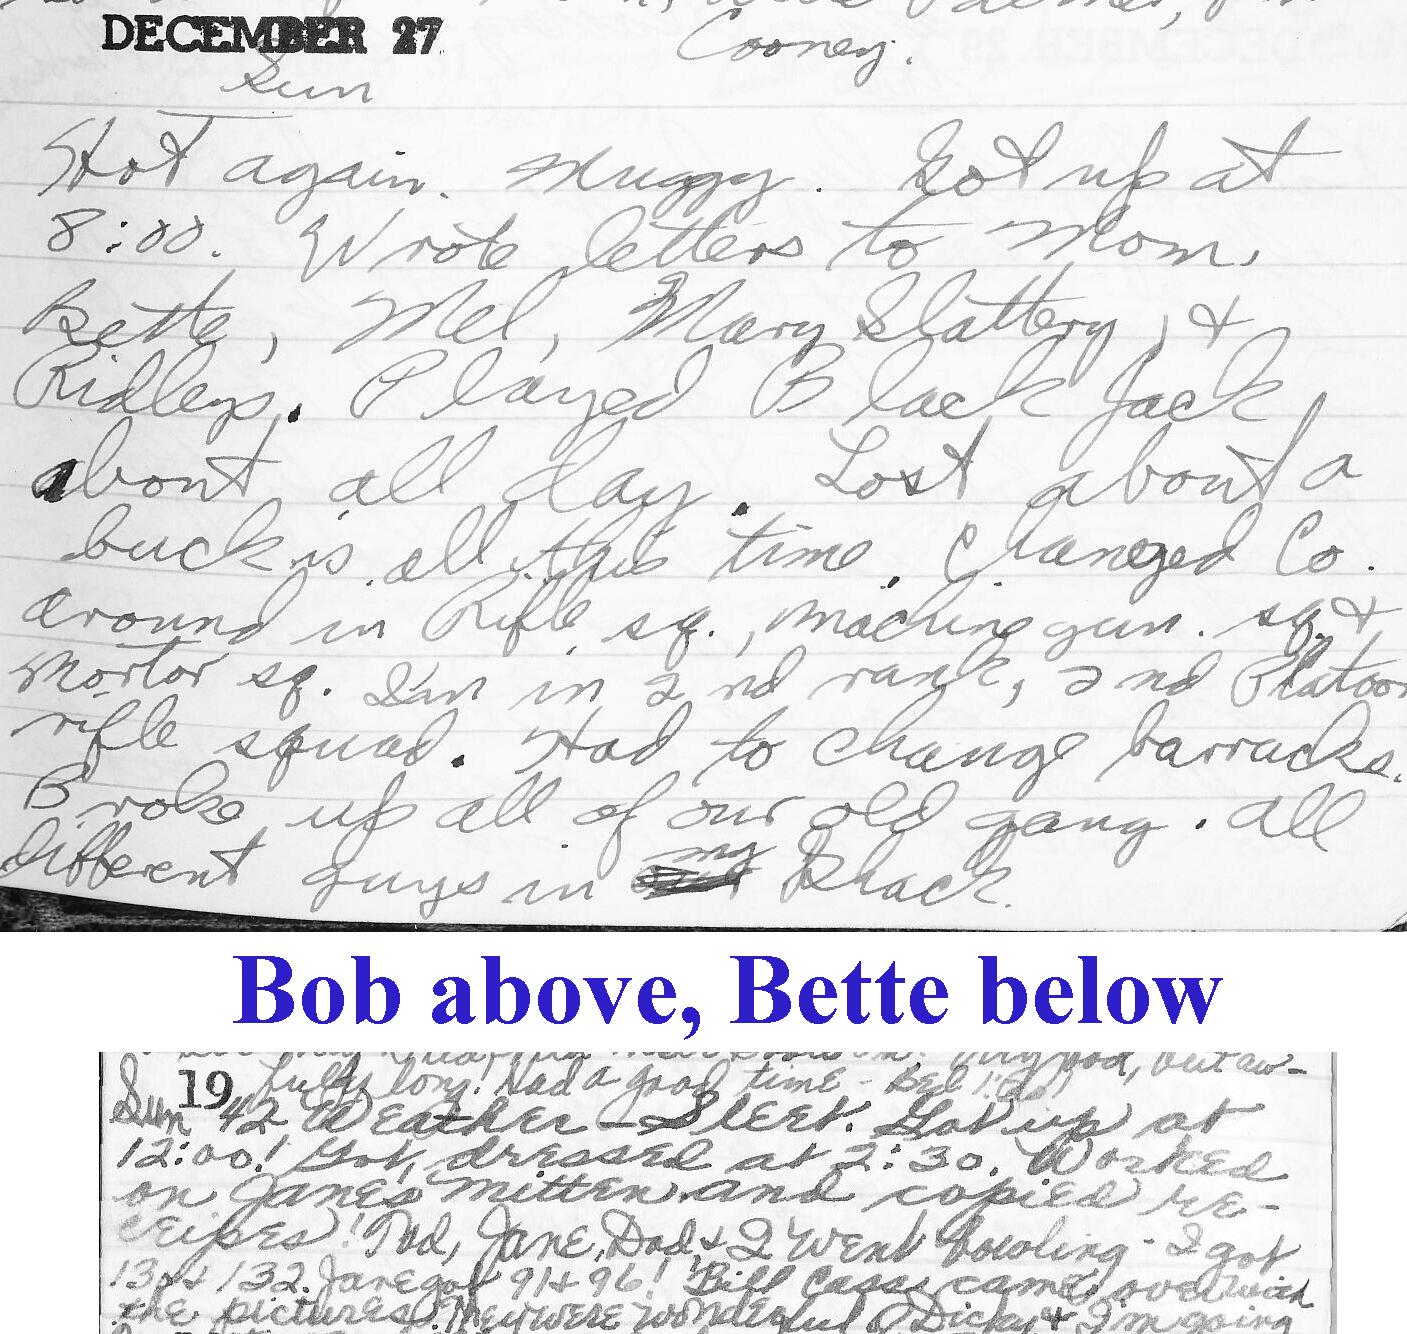 DECEMBER 27
Cooney.
Sun
Hot again. Muggy. Got up at
8:00. Wrote letters to Mom,
Bette, Mel, Mary Slattery, &
Ridleys. Played Black Jack
about all day. Lost about a
buck is all this time. Changed Co.
around in Rifle sq., machine gun. sq. &
Mortor sq. I'm in 2nd rank, 2nd Platoon
rifle squad. Had to change barracks.
Broke up all of our old gang. All
different guys in my Shack.
Bob above, Bette below
good, but aw-
19 fully long. Had a good time - Bed
Sun 42 Weather - Sleet. Got up at
12:00! Got dressed at 2:30. Worked
on Janes mitten and copied re-
ceipes! Tad, Jane, Dad & I went bowling - I got
130 & 132. Jane got 91 & 96! Bill came over with
the pictures. They were wonderful Dicky & I'm going